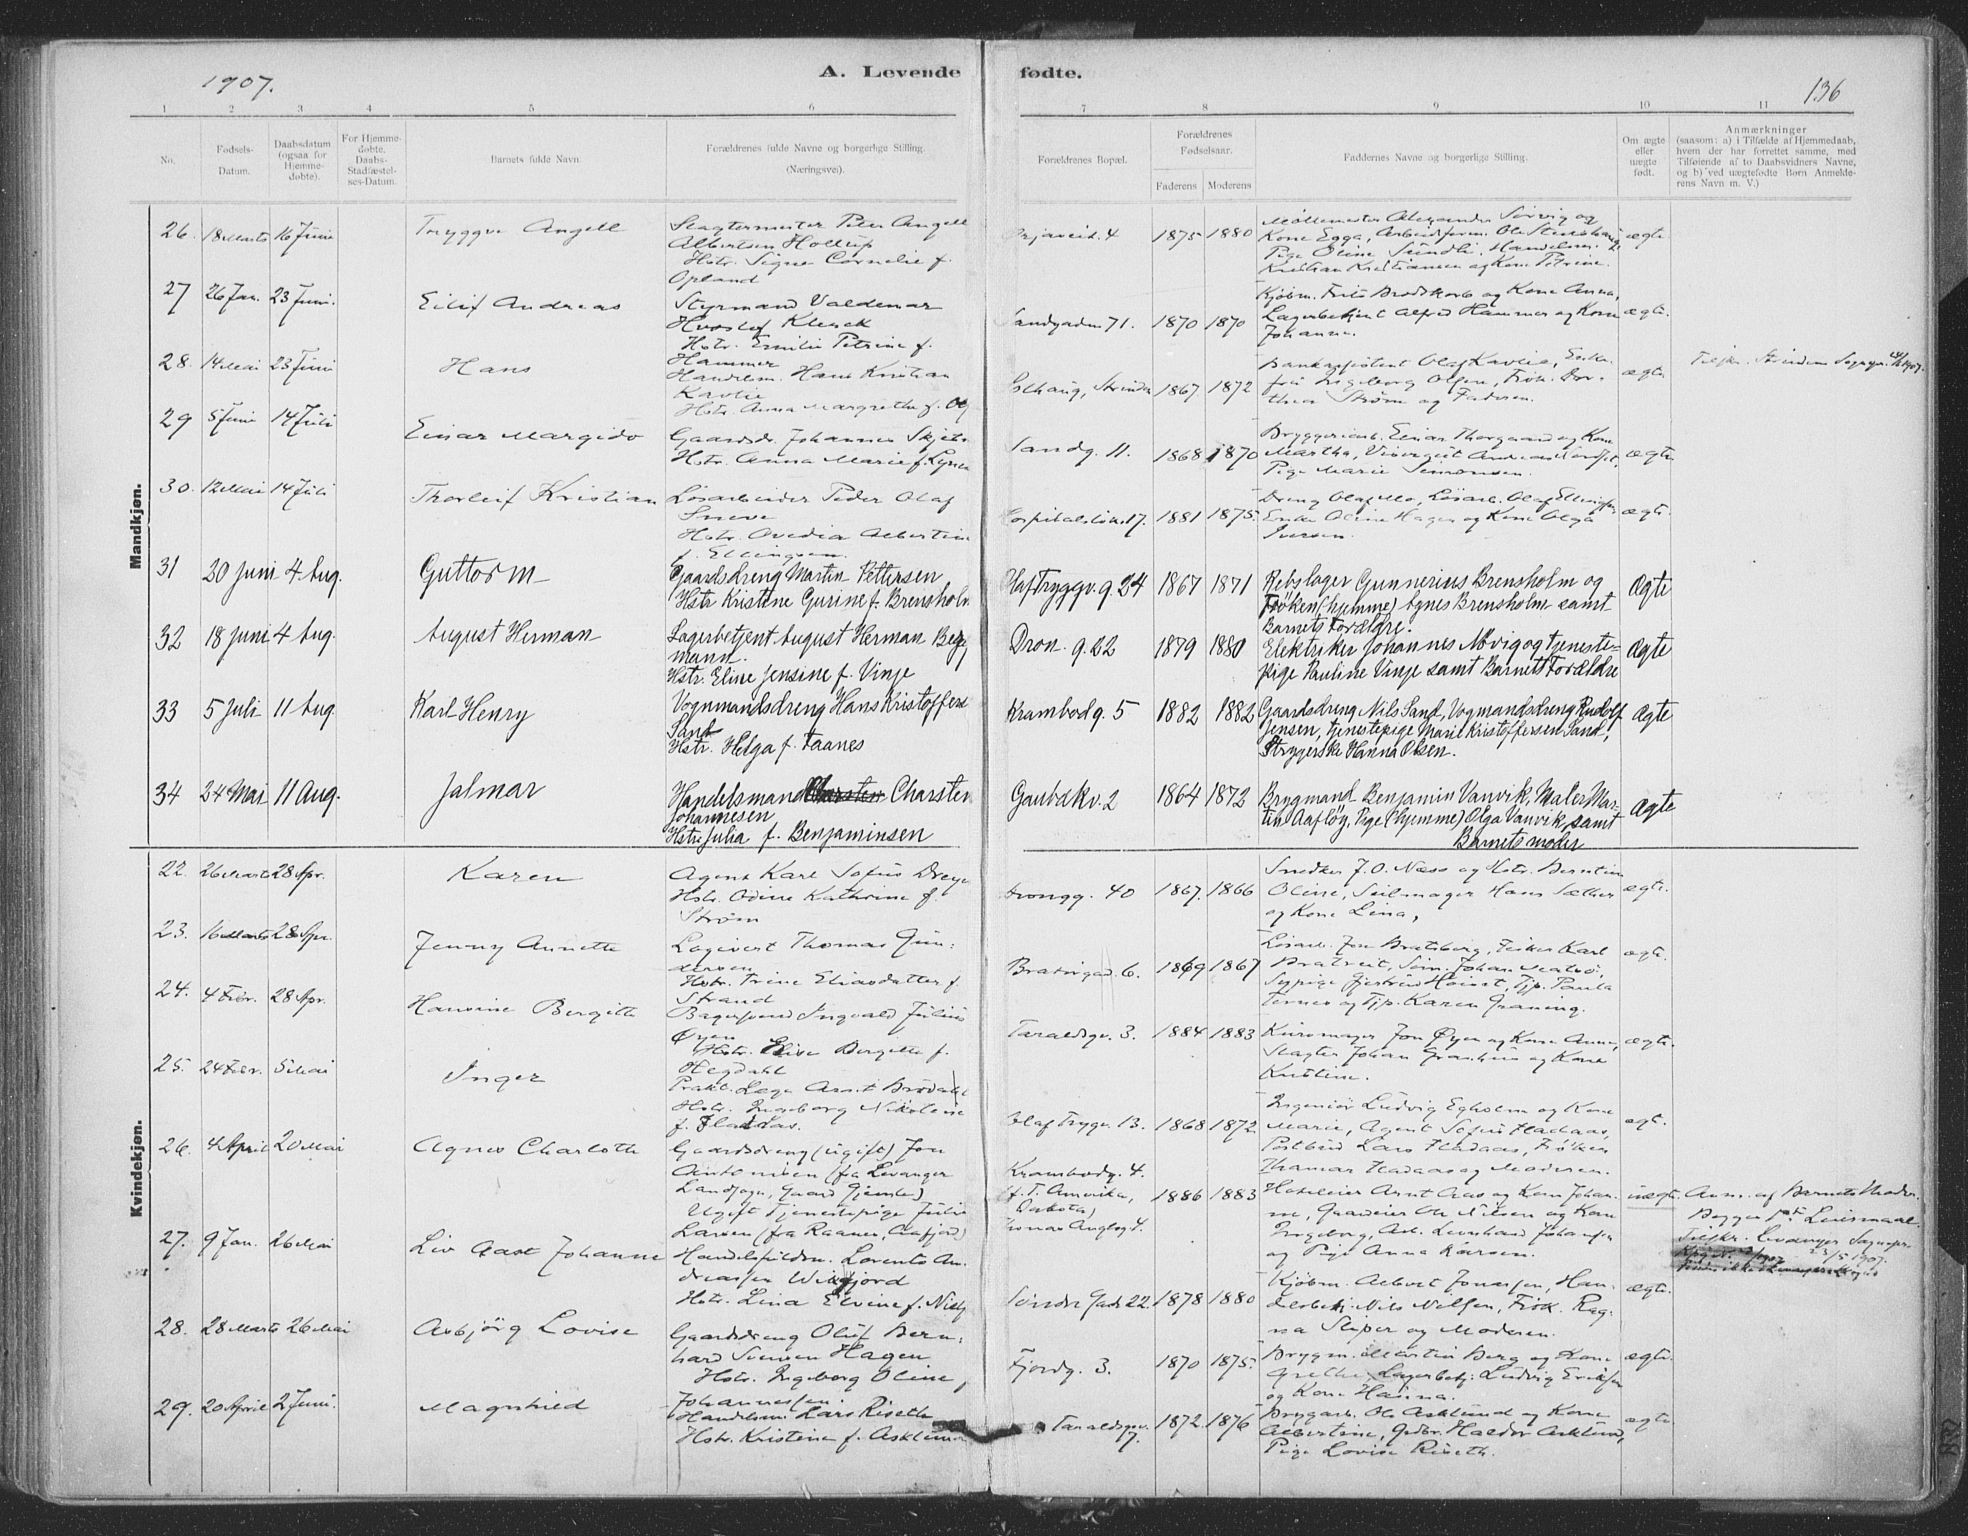 1907.
A. Levende fødte.
136
1 2 3 4 5 6 7 8 9 10 11
No.
Fødsels-
Datum.
Daabsdatum
(ogsaa for
Hjemme-
døbte).
For Hjemme-
døbte,
Daabs-
Stadfæstel-
ses-Datum.
Barnets fulde Navn.
Forældrenes fulde Navne og borgerlige Stilling.
(Næringsvei).
Forældrenes Bopæl.
Forældrenes
Fødselsaar.
Faderens Moderens
Faddernes Navne og borgerlige Stilling.
Om ægte
eller
uægte
født.
Anmærkninger
(saasom: a) i Tilfælde af Hjemmedaab,
hvem der har forrettet samme, med
Tilføiende af to Daabsvidners Navne,
og b) ved uægtefødte Børn Anmelde-
rens Navn m. V.)
Mandkjøn.
26. 18 Marts 16 Juni
Tryggve Angell
Slagtermester Peter Angell
Albertsen Hollup
Hstr. Signe Cornelie f.
Opland
4 1875 1880
Møllemester Alexander Sørvig og
Kone Egga, Arbeidsform. Ole
Pige Oline Sundli, Handelsm.
Kristian Kristiansen og Kone Petrine.
ægte
27 26 Jan. 23 Juni.
Eilif Andreas
Styrmand Valdemar
Hvoslef Klenck
Hstr. Emilie Petrine f.
Hammer
Sandgaden 71. 1870 1870
Kjøbm. Frits Brodtkorb og Kone Anna,
Lagerbetjent Alfred Hammer og Kone
Johanne.
ægte
28. 14 Mai 23 Juni
Hans
Handelsm. Hans Kristian
Kavlie
Hstr. Anna Margrethe f.
Strinden 1867 1872
Bankassistent Olaf Kavlie, Enke-
fru Ingeborg Olsen, Frøk. Dor-
thea Strøm og Faderen.
ægte
Tilskr. Strinden Sognepr. 1907.
29 5 Juni 14 Juli
Einar Margido
Gaardsdr. Johannes
Hstr. Anna Marie f.
Sandg. 11. 1868 1870
Bryggeriarb. Einar Thorgaard og Kone
Martha, Visergut Andreas
Pige Marie Simonsen.
ægte
30. 12 Mai 14 Juli
Thorleif Kristian
Løsarbeider Peder Olaf
Sneve
Hstr. Ovedia Albertine
f. Ellingsen.
17. 1881 1875.
Dreng Olaf Mo, Løsarb. Olaf Ellingsen,
Enke Oline Hagen og Kone Olga
Iversen.
ægte
31 20 Juni 4 Aug.
Guttorm
Gaardsdreng Martin Pettersen
Hstr Kristine Gurine f. Brensholm
Olaf Tryggv. g. 24 1867 1871
Rebslager Gunnerius Brensholm og
Frøken (hjemme) Agnes Brensholm samt
Barnets Forældre.
Ægte
32 18 Juni 4 Aug.
August Herman
Lagerbetjent August Herman Berg
mann.
Hstr. Eline Jensine f. Vinje
Dron. g. 22 1879 1880
Elektriker Johannes Møvig og Tjeneste-
pige Pauline Vinje samt Barnets Forældre
Ægte
33 5 Juli 11 Aug.
Karl Henry
Vognmandsdreng Hans Kristoffersen
Sand
Hstr. Helga f. Faanes
Krambodg. 5 1882 1882
Gaardsdreng Nils Sand, Vogmandsdreng Rudolf
Jensen, Tjenestepige Marie Kristoffersen Sand,
Strygerske Hanna Olsen.
Ægte
34 24 Mai 11 Aug.
Jalmar
Handelsmand Charsten Charsten
Johannesen
Hstr. Julia f. Benjaminsen
Gaubækv. 2 1864 1872
Brygmand Benjamin Vanvik, Maler Mar-
tin Aafløy, Pige (hjemme) Olga Vanvik, samt
Barnets moder
Ægte
Kvindekjøn.
22. 26 Marts 28 Apr.
Karen
Agent Karl Sofus Dreyer
Hstr. Odine Kathrine f.
Strøm
Drongg. 40 1867. 1866
Snedker J. O. Næss og Hstr. Berntine
Oline, Seilmager Hans Sæther
og Kone Lina,
ægte.
23. 16 Marts 28 Apr.
Jenny Annette
Logivert Thomas Gun-
dersen
Hstr. Trine Eliasdatter f.
Strand
6. 1869 1867
Løsarb. Jon Bratsberg, Fisker Karl
Bratreit, Søm. Johan
Sypige Gjertrud Hoiset, Tjp. Paula
Ternes og Tjp. Karen Graning.
ægte.
24. 4 Febr. 28 Apr.
Hansine Bergitte
Bagersvend Ingvald Julius
Øyen
Hstr. Elise Bergitte f.
Hegdahl
Taraldsgv. 3. 1884 1883
Jon Øyen og Kone Anne,
Slagter Johan og Kone
Kristine.
ægte.
25. 24 Febr. 5 Mai
Inger
Prakt. Læge Arnt Brødahl
Hstr. Ingeborg Nikoline
f. Fladaas.
Olaf Trygv. 13. 1868 1872.
Ingeniør Ludvig Egholm og Kone
Marie, Agent Sofus Fladaas,
Postbud Lars Fladaas, Frøken
Thamar Fladaas og Moderen.
ægt.
26. 4 April 20 Mai
Agnes Charlotte
Gaardsdreng (ugift) Jon
(fra Levanger
Landsogn, Gaard Gjemble)
Ugift Tjenestepige Julie
Larsen (fra Raanes, Aafjord)
Krambodg. 4.
(f. T. Amerika,
Dakota)
Thomas Anglsg 4.
1886 1883
Hoteleier Arnt Aas og Kone Johan-
ne, Gaardeier Ole Nilsen og Kone
Ingeborg, Arb. Leonhard Johansen
og Pige Anna Larsen.
uægt.
Anm. af Barnets Moder.
Begges 1ste Leiermaal.
Tilskr. Levanger Sognepr.
23/5 1907.
27. 9 Jan. 26 Mai
Liv Aase Johanne
Handelsfuldm. Lorents An-
dreassen Wingfjord
Hstr. Lina Elvine f.
Søndre Gade 22. 1878 1880
Kjøbm. Albert Jonassen, Han-
delsbetj. Nils Nilsen, Frøk. Rag-
na Sliper og Moderen.
ægte.
28. 28 Marts 26 Mai
Asbjörg Lovise
Gaardsdreng Oluf Bern-
hard Svensen Hagen
Hstr. Ingeborg Oline f.
Johannessen.
Fjordg. 3. 1870 1875.
Brygm. Martin Berg og Kone
Grethe, Lagerbetj. Ludvig Eriksen
og Kone Hanna.
ægte.
29. 20 April 2 Juni.
Magnhild
Handelsm. Lars Riseth
Hstr. Kristine f. Asklund
Taraldsgv.
7. 1872. 1876
Brygarb. Ole Asklund og Kone
Albertine, Gaardbr. Haldor Asklund,
Pige Lovise Riseth.
ægte.